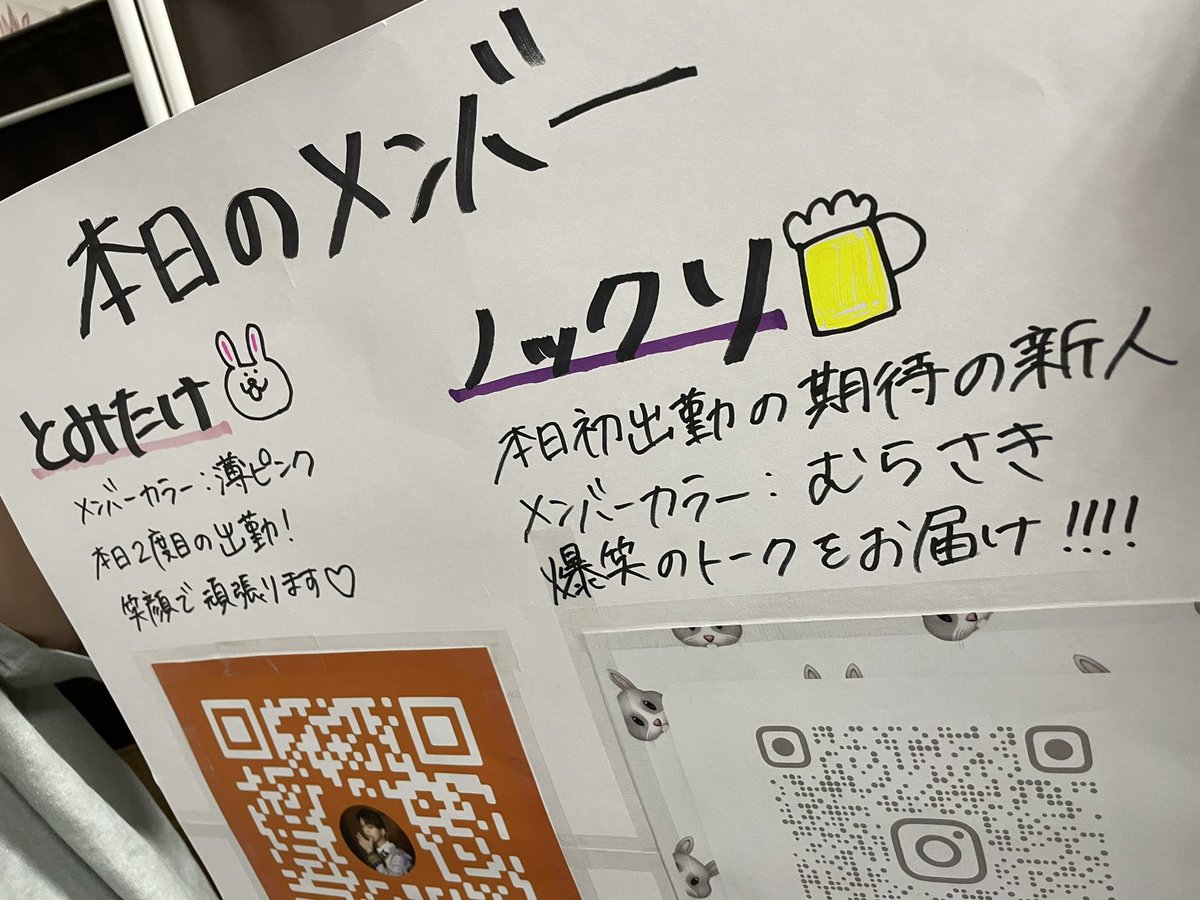 本日のメンバー
とみたけ
メンバーカラー：薄ピンク
本日2度目の出勤！
笑顔で頑張ります♡
ノックソ
本日初出勤の期待の新人
メンバーカラー：むらさき
爆笑のトークをお届け!!!!